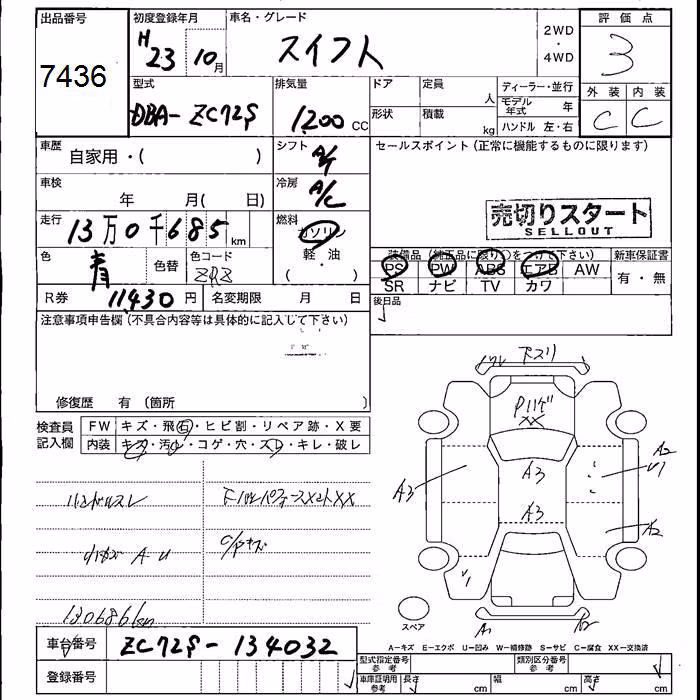 出品番号
7436
初度登録年月
H23 10月
車名・グレード
スイフト
2WD
・
4WD
評価点
3
型式
DBA-ZC72S
排気量
1200 CC
ドア
定員
人
形状
積載
kg
ディーラー・並行
モデル年式 年
ハンドル 左・右
外装
内装
C
C
車歴
自家用・( )
シフト
A/T
セールスポイント(正常に機能するものに限ります)
車検
年 月( 日)
冷房
A/C
売切りスタート
SELLOUT
走行
13万0千685km
燃料
ガソリン
軽・油
( ・ )
色
青
色替
色コード
装備品(純正品に限り○をつけ下さい)
PS PW ABS エアB AW
SR ナビ TV カワ
新車保証書
有・無
R券
11430円
名変期限 月 日
後日品
注意事項申告欄(不具合内容等は具体的に記入して下さい)
修復歴 有(箇所 )
検査員記入欄
FW キズ・飛石・ヒビ割・リペア跡・X要
内装 キズ・汚レ・コゲ・穴・スレ・キレ・破レ
ハンドルスレ
小キズ A U
C/Pキズ
130686km
下スリ
XX
A3
A3
A3
A2
U1
A2
A1
スペア
A-キズ E-エクボ U-凹み W-補修跡 S-サビ C-腐食 XX-交換済
車台番号
ZC72S-134032
登録番号
型式指定番号参考
類別区分番号参考
車庫証明用参考
長さ cm
幅 cm
高さ cm